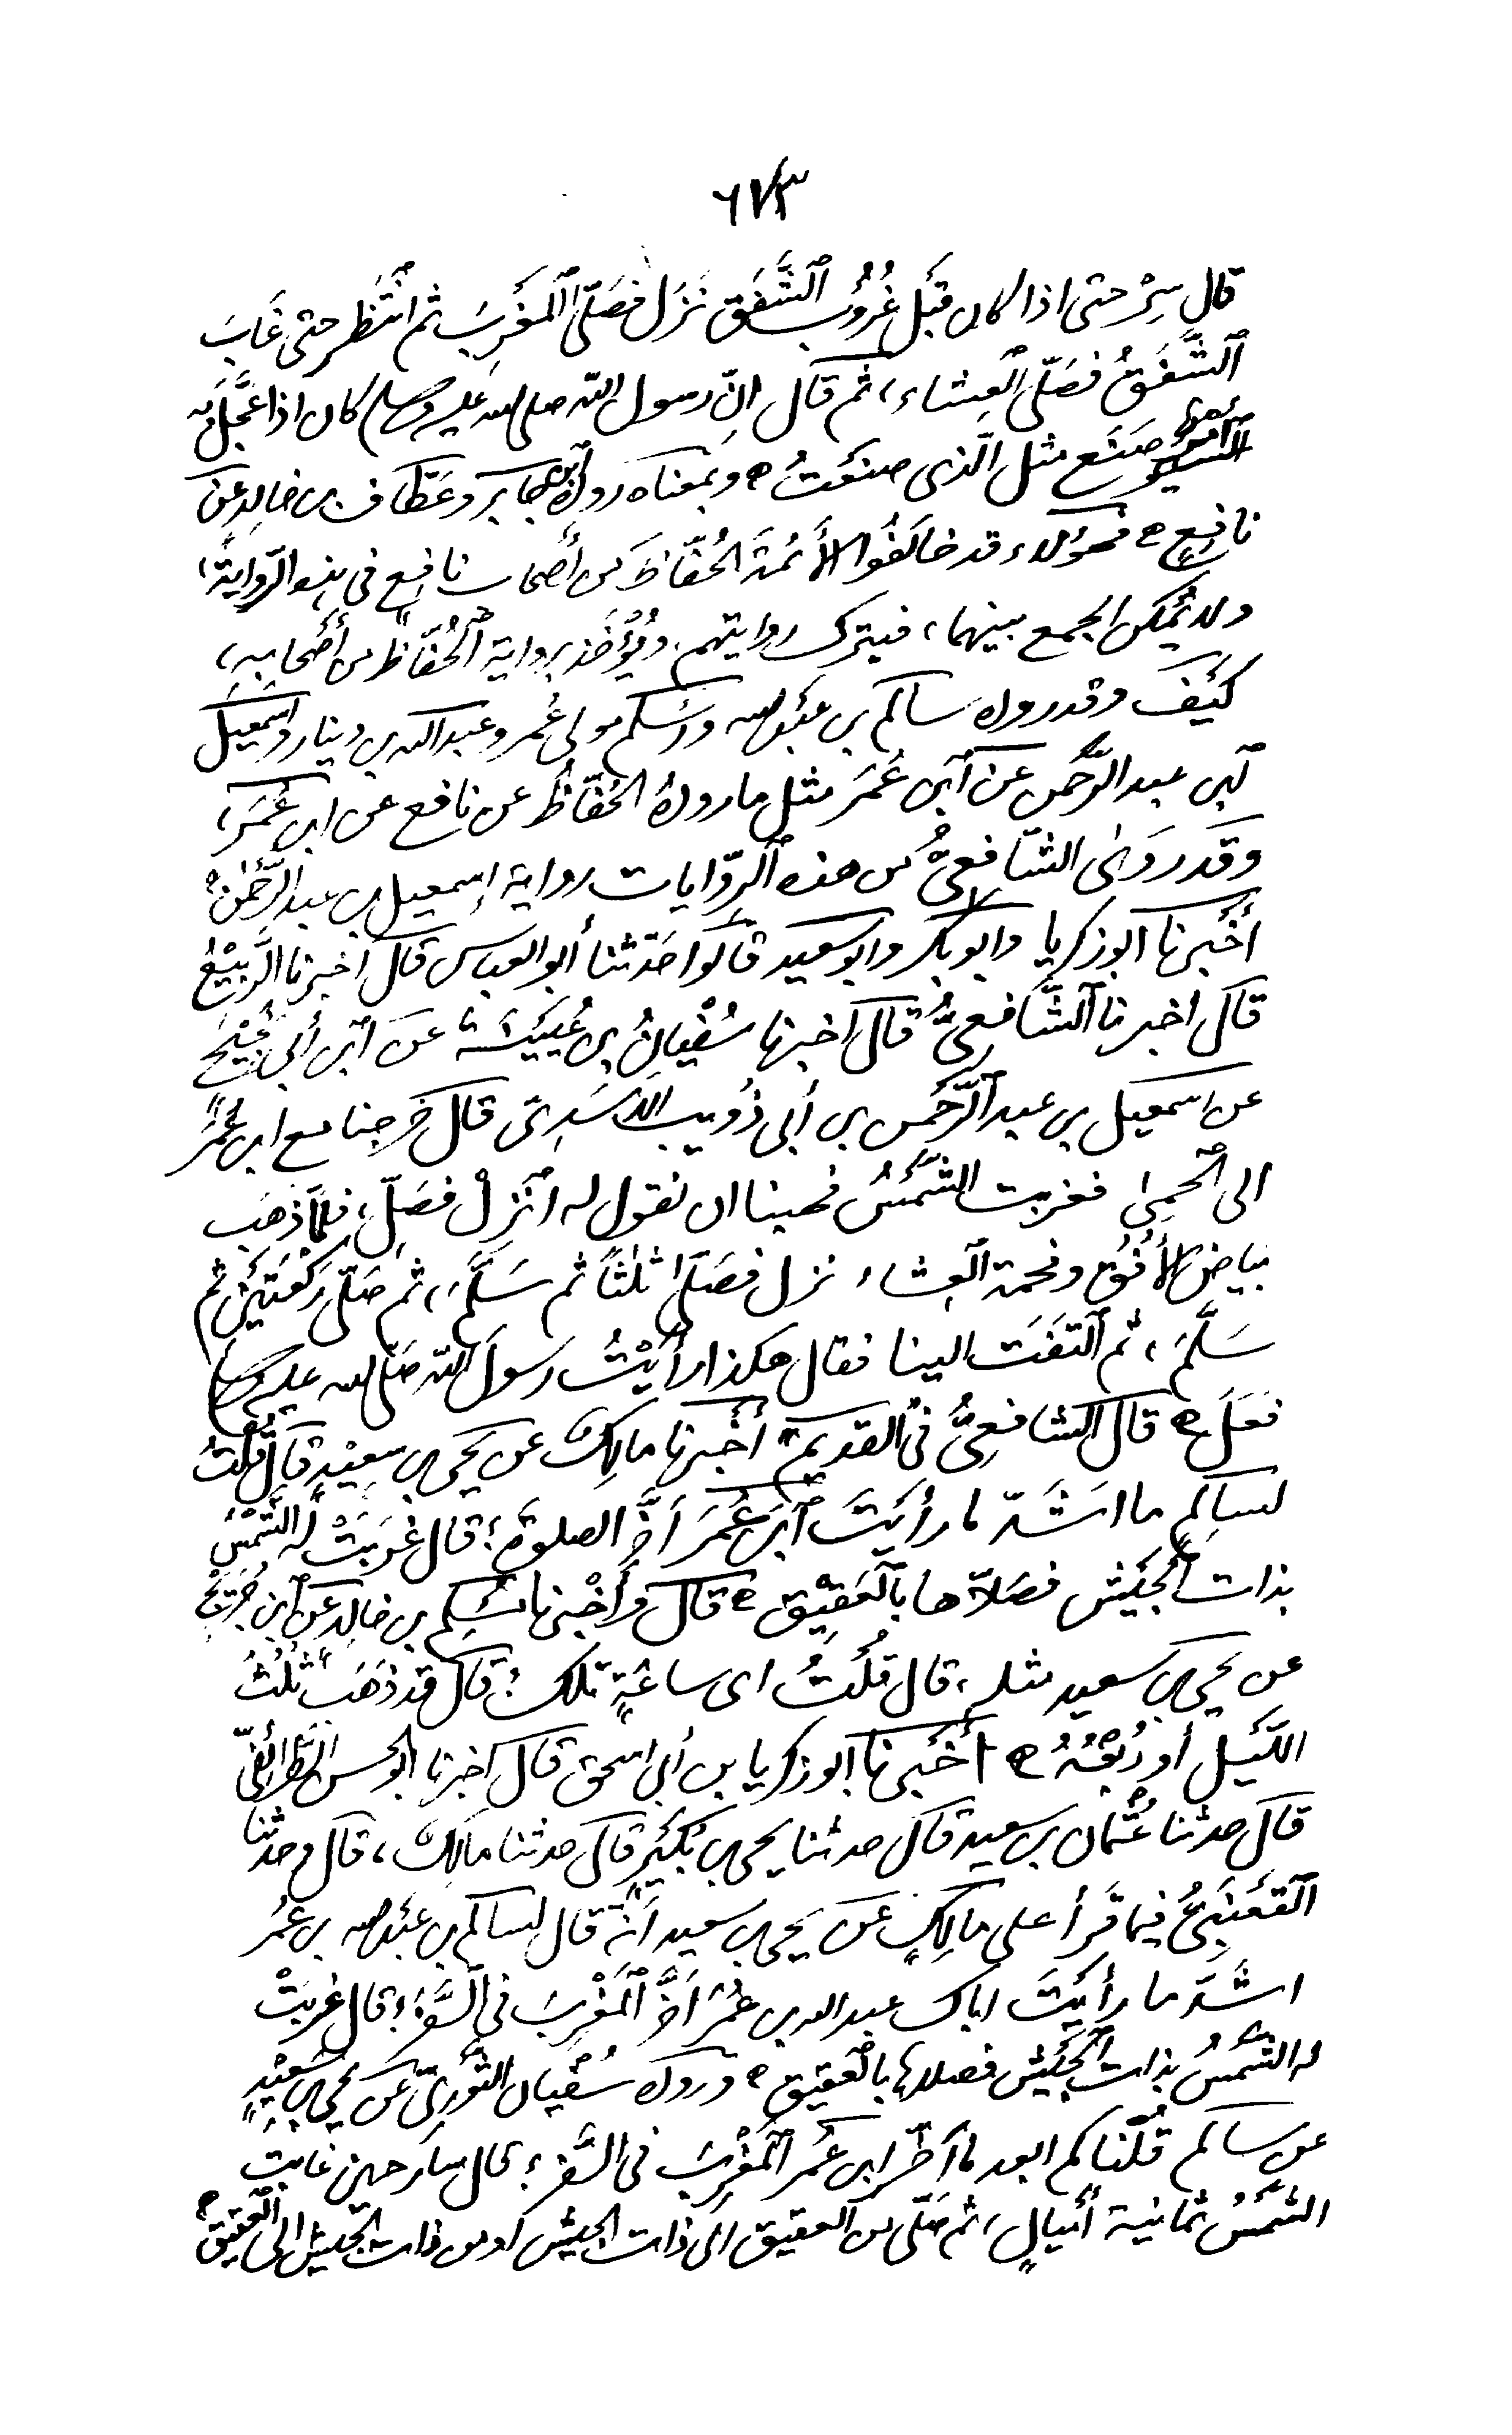 ٦٧٣
قال سِرْ حتى اذا كان قَبْل غُرُوْبِ الشَّفَق نَزَل فصَلّى المَغْرِبَ ثم انْتَظَر حتى غَابَ
الشَّفَقُ فصَلّى العِشاء، ثم قال انّ رسول الله صلى الله عليه وسلم كان اذا عَجَّل به
أمرٌ صَنَع مثل الّذى صنعتُ ه وبمعناه رواه ابن جابر وعَطّاف بن خالد عن
نافِع ه فهؤلاء قد خالَفُوا الأَئمّةَ الحُفّاظَ من أصحاب نافِع فى هذه الرّوايةِ،
ولا يُمكن الجمع بينهما، فيترك روايتهم ويُؤْخَذ برواية الحُفّاظِ من أَصْحابه،
كَيْفَ وقد رواه سالم بن عبد الله وأسلم مولى عُمر وعبد الله بن دينار واسمعيل
بن عبد الرَّحمن عن ابْنِ عُمَرَ مثل ما رواهُ الحُفّاظُ عن نافع عن ابن عُمَرَ،
وقَد رَوَى الشّافعىُّ من هذه الرِّوايات رواية إسمعيل بن عبد الرَّحْمٰن ه
أَخْبرنا ابو زكريا وابو بكر وابو سعيد قالوا حَدّثنا أبو العباس قال اخبرنا الرَّبِيْعُ
قال اخبرنا الشّافعىُّ قال اخبرنا سُفْيانُ بن عُيَيْنَة عن ابْنِ أبى نَجِيْحٍ
عن اسمعيل بن عبد الرَّحْمن بن أبى ذُوَيب الأَسَدِىّ قال خرجنا مع ابن عُمَرَ
الى الْحِمىٰ فغربت الشَّمْسُ فهبنا ان نقول له انْزِلْ فصَلِّ، فلمّا ذهَبَ
بياضُ الأُفُقِ وفحمة العِشاء نزل فصَلّى ثلٰثًا ثم سَلَّمَ، ثم صَلّى رَكْعَتَيْنِ ثم
سَلَّمَ، ثم الْتَفَتَ الينا فقال هكذا رأَيْتُ رَسولَ الله صَلّى الله عليه وسلم
فَعَلَ ه قال الشافِعىُّ فى القديم أَخْبرنا مالِكٌ عن يحيى بن سعِيْدٍ قال قُلْتُ
لسالِمٍ ما اشَدّ ما رأَيْتَ ابْنَ عُمَرَ أَخَّرَ الصلوةَ؟ قال غَرَبَتْ له الشَّمْسُ
بذات الْجَيْش فصَلاّها بالْعَقِيْقِ ه قال وأَخْبرنا مُسْلِم بن خالِد عن ابْنِ جُرَيْجٍ
عن يحيى بن سعيد مثله، قال قُلْتُ اى ساعَةٍ تلك؟ قال قد ذَهَبَ ثُلُثُ
اللَّيْل أو رُبْعُهُ ه أَخْبَرنا ابو زكريا بن أبى اسحق قال اخبرنا ابو الحسن الطَّرائِفىّ
قال حدثنا عُثْمان بن سعيد قال حدثنا يحيى بن بُكَيْرٍ قال حدثنا مالِكٌ، قال وحدثنا
القَعْنَبىُّ فيما قَرأ على مالِكٍ عن يحيى بن سعيد أَنّهُ قال لسالم بن عَبْد الله بن عُمَر
اشَدّ ما رأَيْتَ اباك عبد الله بن عُمَرَ أَخَّرَ الْمَغْرِبَ فى السَّفَرِ؟ قال غربَتْ
له الشَّمْسُ بذات الْجَيْش فصلاها بالْعَقِيْق ه ورواه سُفْيان الثَّوْرِىّ عن يحيى بن سَعِيْدٍ
عن سالم قُلْنا كم ابعد ما أَخَّر ابن عُمَر الْمَغْرِبَ فى السَّفَر؟ قال سار حين غابَتِ
الشَّمْسُ ثمانية أَمْيالٍ، ثم صَلّى من العقيق الى ذات الجَيْش او من ذات الجَيْش الى الْعَقِيْق ه